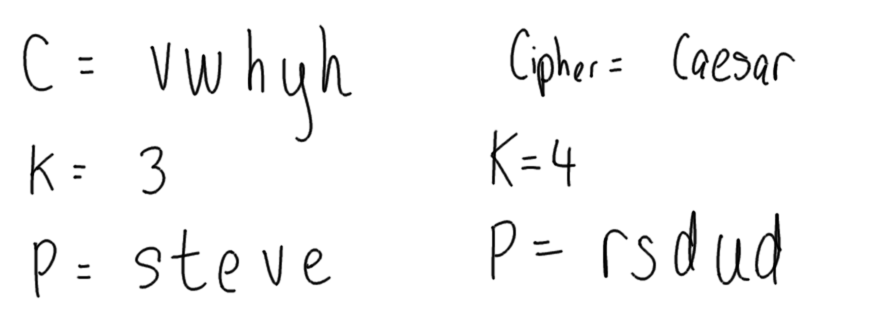 C = vwhyh
K = 3
P = steve
Cipher = Caesar
K = 4
P = rsdud